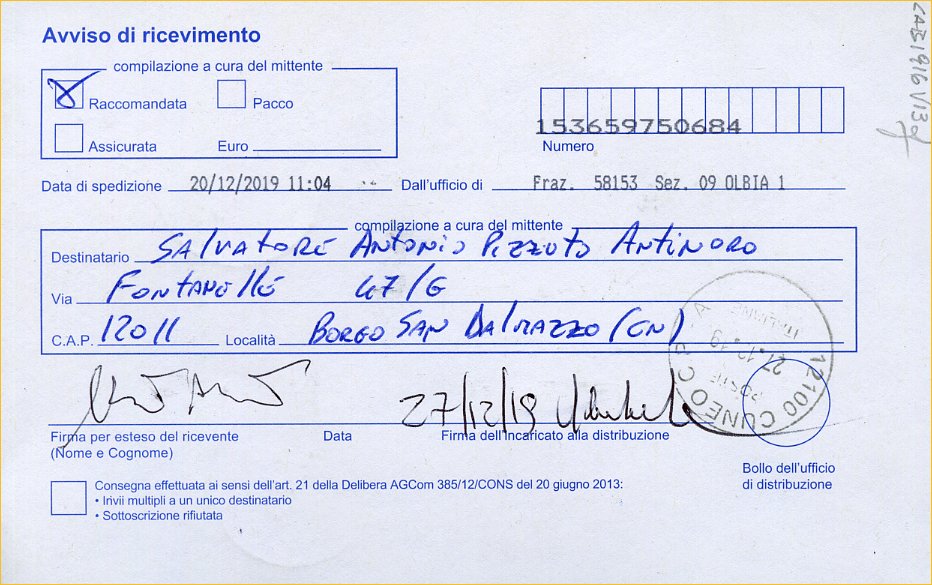 Avviso di ricevimento
compilazione a cura del mittente
Raccomandata
Pacco
Assicurata
Euro
153659750684
Numero
Data di spedizione 20/12/2019 11:04 Dall'ufficio di Fraz. 58153 Sez. 09 OLBIA 1
compilazione a cura del mittente
Destinatario SALVATORE ANTONIO PIZZUTO ANTINORO
Via FONTANELLE 47/G
C.A.P. 12011 Località BORGO SAN DALMAZZO (CN)
27/12/19
Firma per esteso del ricevente
(Nome e Cognome)
Data
Firma dell'incaricato alla distribuzione
12100 CUNEO C
27.12.19
Bollo dell'ufficio
di distribuzione
Consegna effettuata ai sensi dell'art. 21 della Delibera AGCom 385/12/CONS del 20 giugno 2013:
• Irivii multipli a un unico destinatario
• Sottoscrizione rifiutata